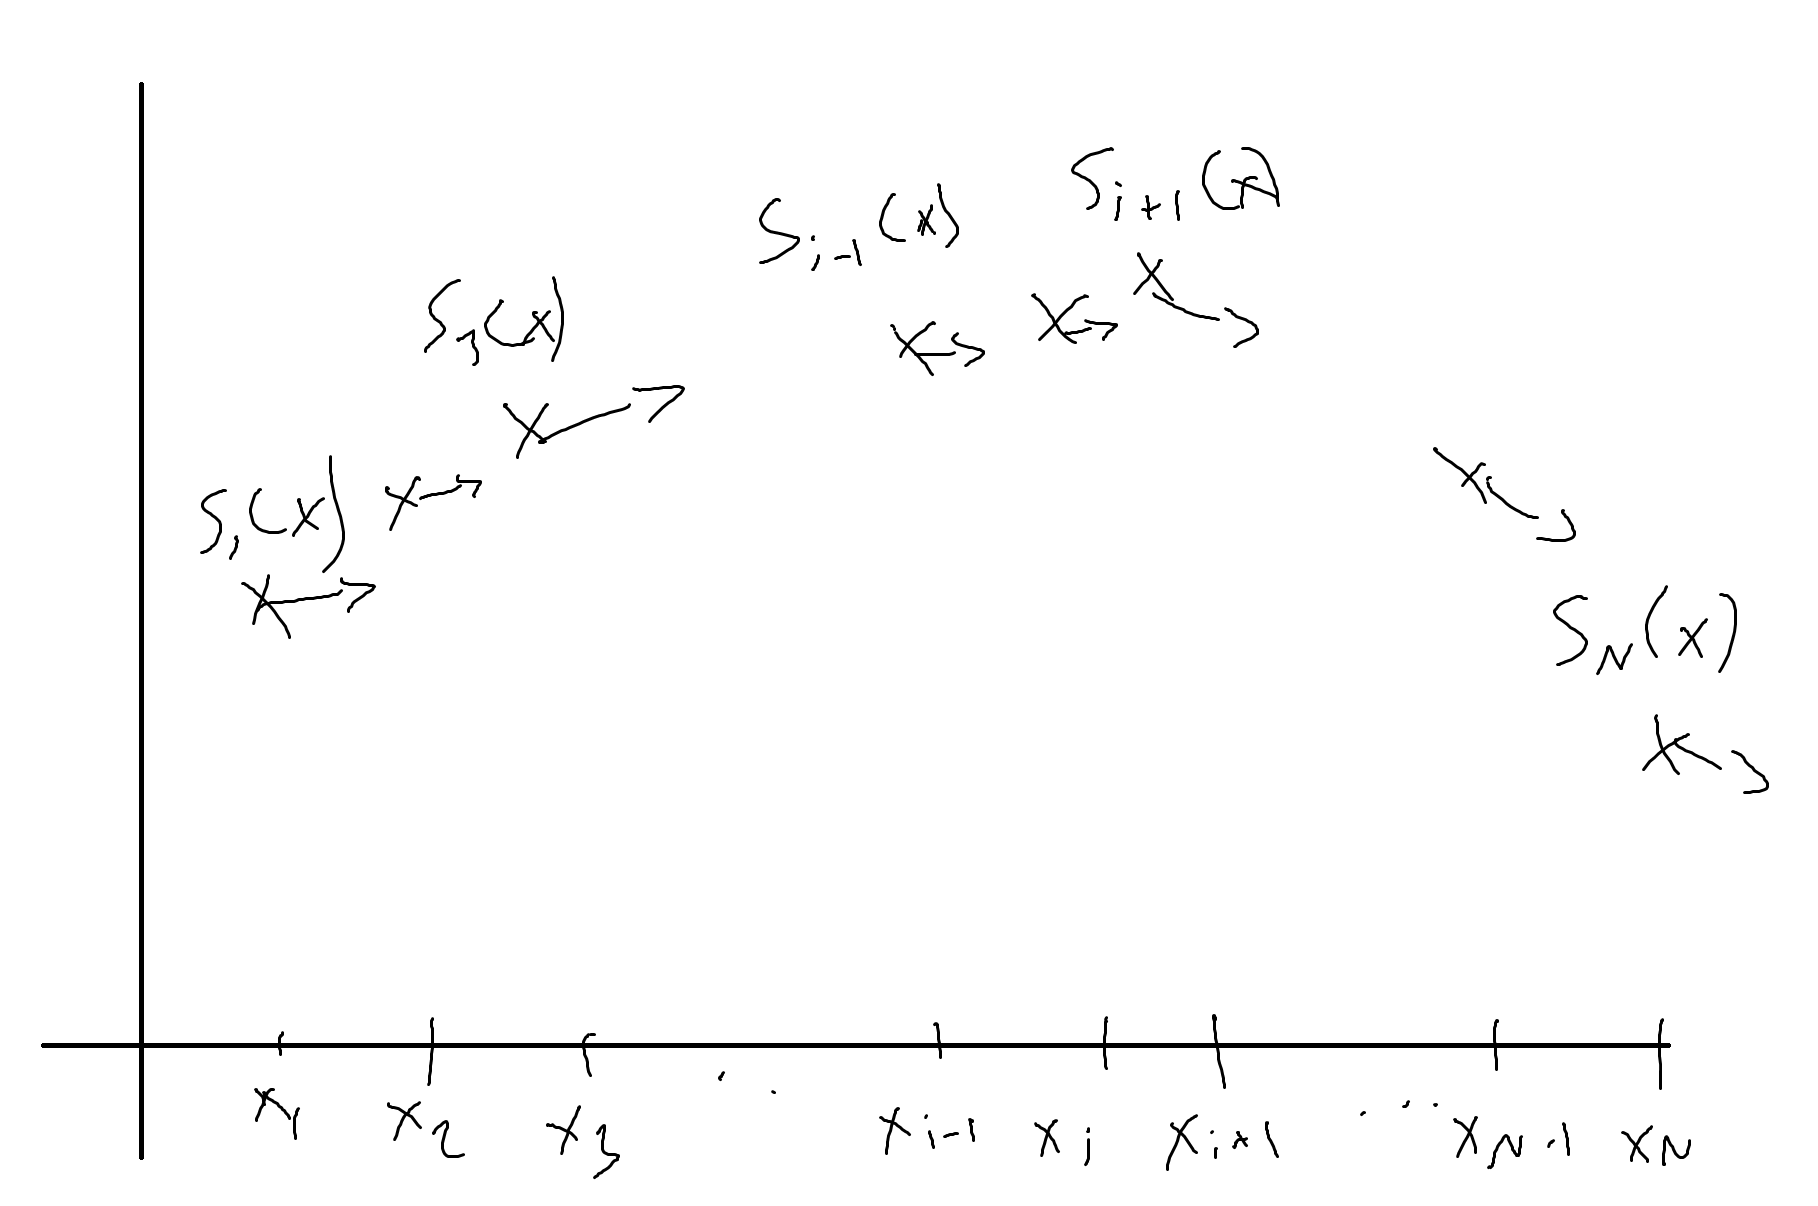 S_{i+1}(x)
S_{i-1}(x)
S_3(x)
S_1(x)
S_N(x)
x_1 x_2 x_3 .. x_{i-1} x_i x_{i+1} ... x_{N-1} x_N